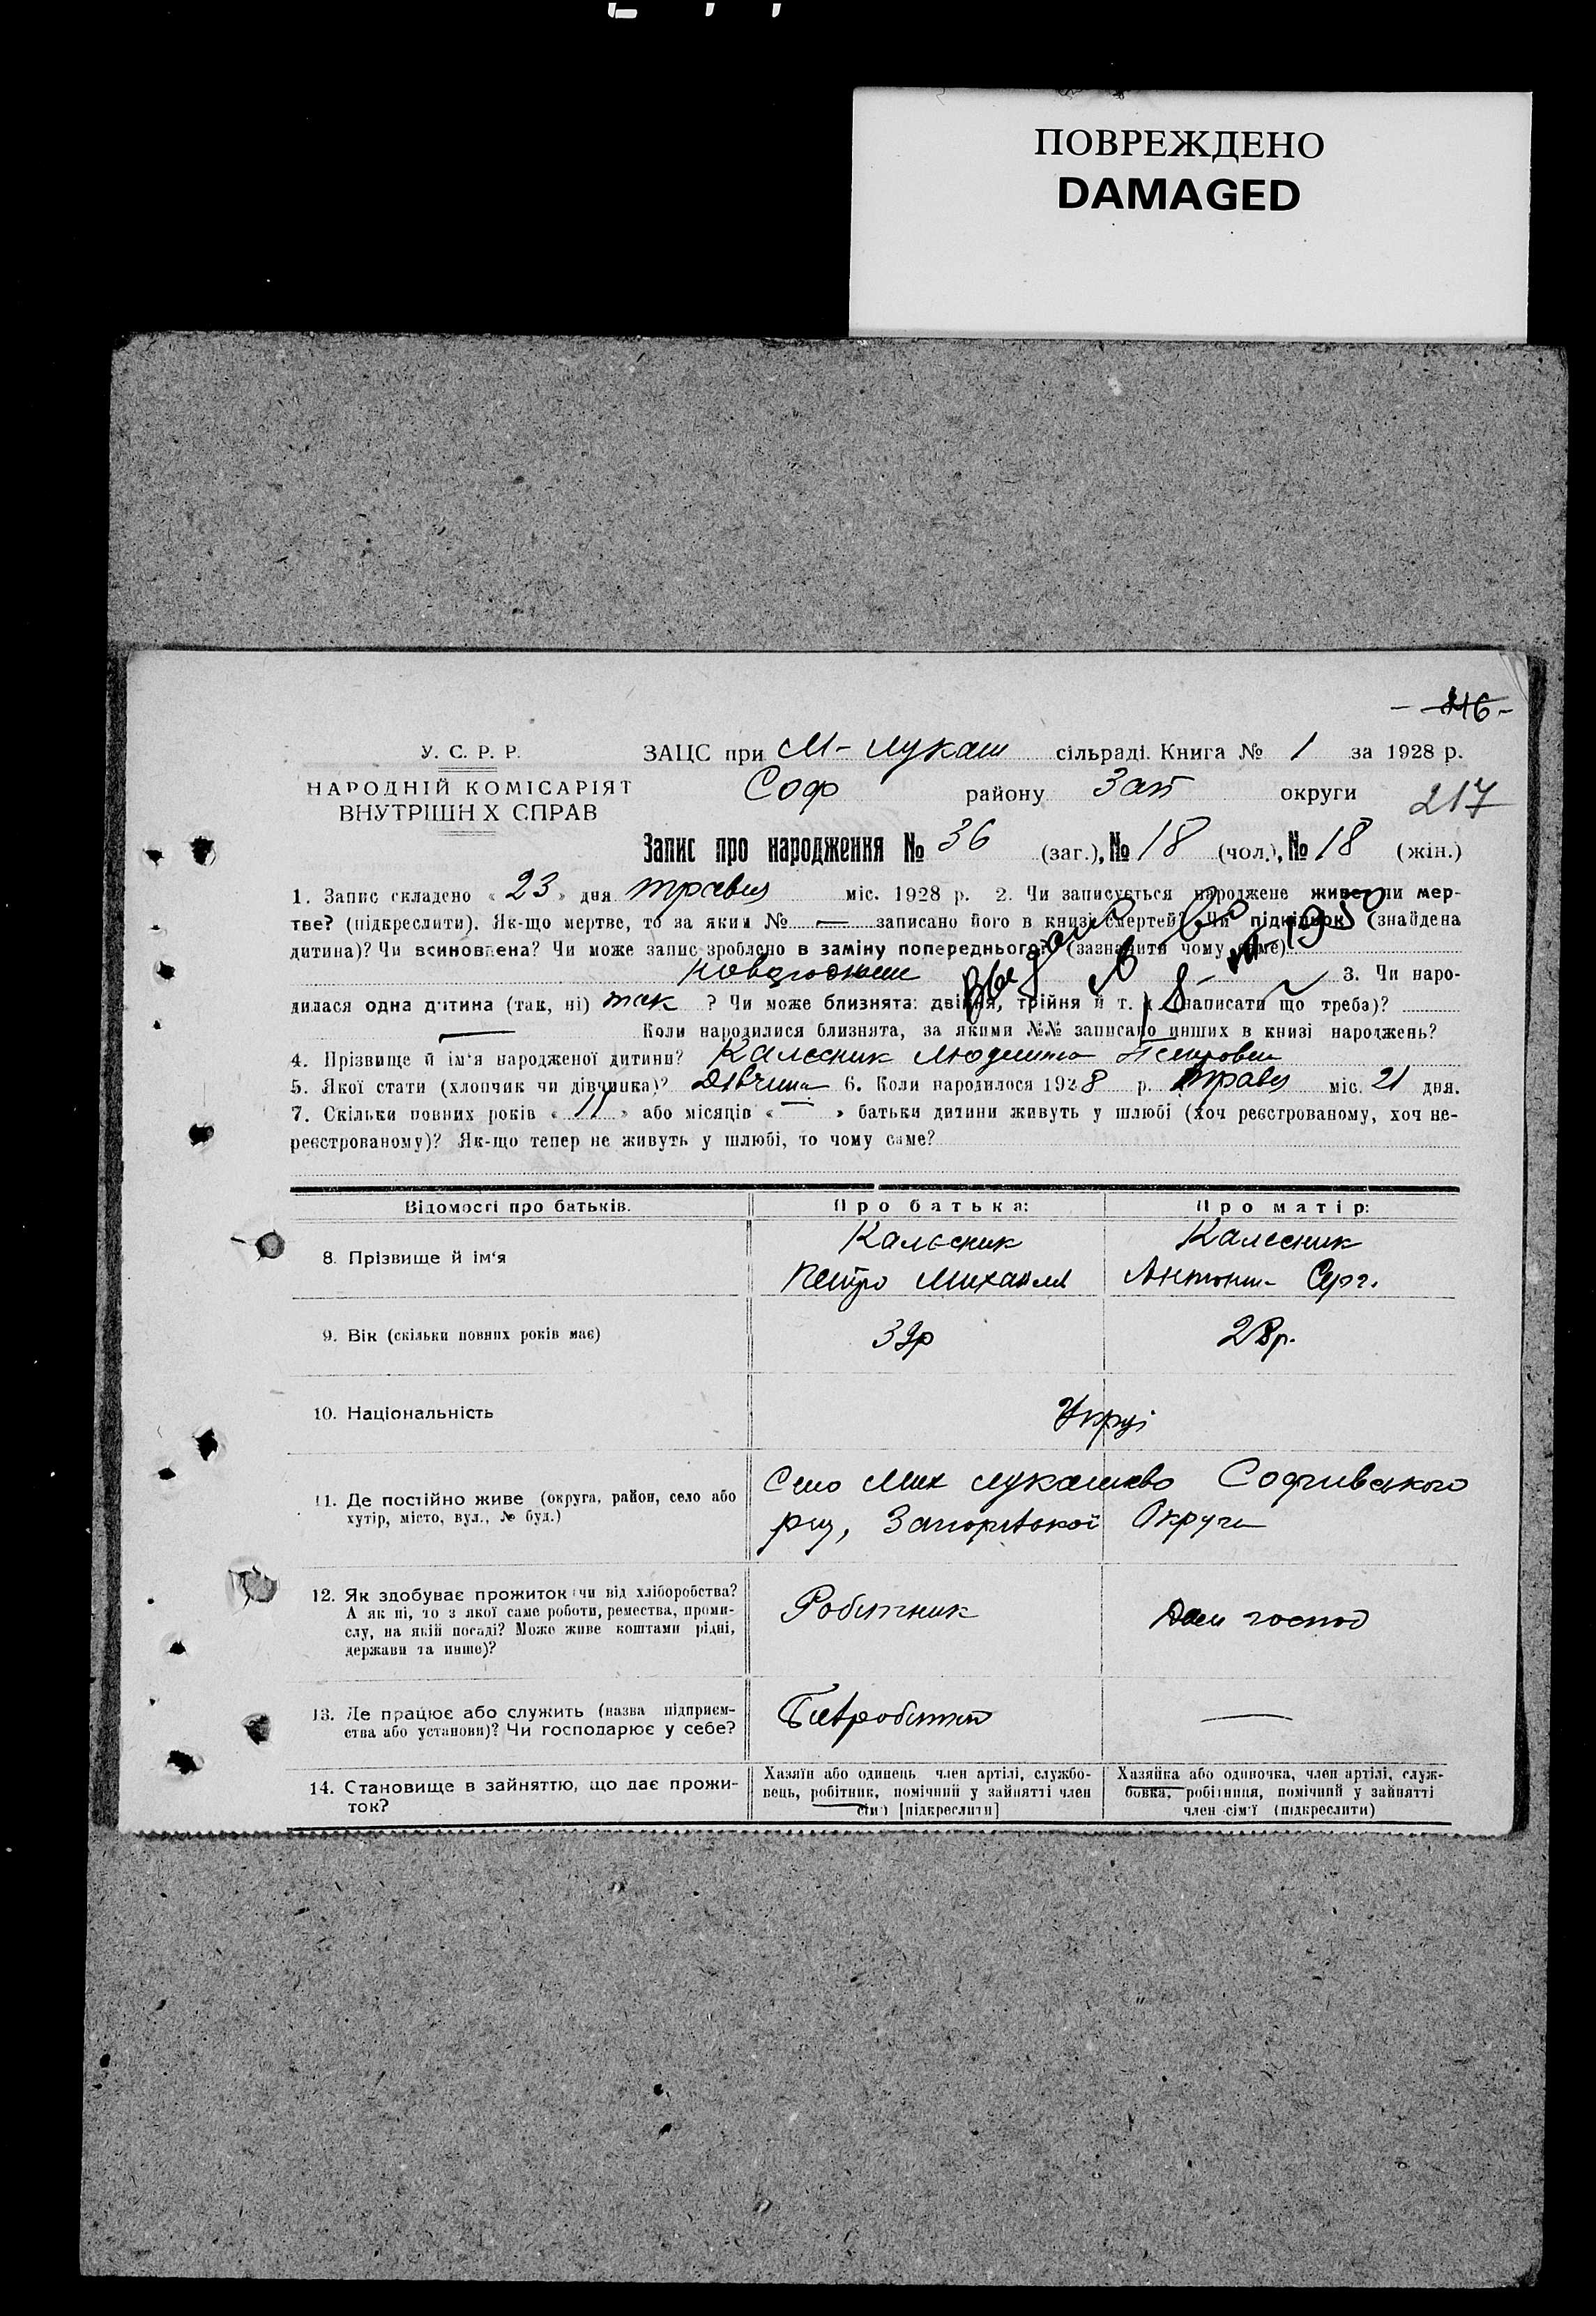 ПОВРЕЖДЕНО
DAMAGED
- 216 -
У. С. Р. Р.
НАРОДНІЙ КОМІСАРІЯТ
ВНУТРІШН Х СПРАВ
ЗАЦС при М-Лукаш сільраді. Книга № 1 за 1928 р.
Соф району Зап округи 217
Запис про народження № 36 (заг.), № 18 (чол.), № 18 (жін.)
1. Запис складено « 23 » дня травня міс. 1928 р. 2. Чи записується народжене живе чи мер-
тве? (підкреслити). Як-що мертве, то за яким № — записано його в книзі смертей? Чи підкидьок (знайдена
дитина)? Чи всиновлена? Чи може запис зроблено в заміну попереднього? (зазначити чому саме)
3. Чи наро-
дилася одна дитина (так, ні) так ? Чи може близнята: двійня, трійня й т. (написати що треба)?
— Коли народилися близнята, за якими №№ записано инших в книзі народжень?
4. Прізвище й ім'я народженої дитини? Калєсник Людмила Петровна
5. Якої стати (хлопчик чи дівчинка)? Дівчина 6. Коли народилося 1928 р. травня міс. 21 дня.
7. Скільки повних років « 11 » або місяців « — » батьки дитини живуть у шлюбі (хоч реєстрованому, хоч не-
реєстрованому)? Як-що тепер не живуть у шлюбі, то чому саме?
Відомості про батьків. Про батька: Про матір:
8. Прізвище й ім'я Калєсник Калєсник
Петро Михайлов Антонин- Серг.
9. Вік (скільки повних років має) 39р 28р.
10. Національність Украї
11. Де постійно живе (округа, район, село або
хутір, місто, вул., № буд.)
Село Мих Лукашево Софиївського
рну, Запорізької Округи
12. Як здобуває прожиток (чи від хліборобства?
А як ні, то з якої саме роботи, ремества, проми-
слу, на якій посаді? Може живе коштами рідні,
держави та инше)?
Робітник Дом господ
13. Де працює або служить (назва підприєм-
ства або установи)? Чи господарює у себе?
Безробітний —
14. Становище в зайняттю, що дає прожи-
ток?
Хазяїн або одинець член артілі, службо-
вець, робітник, помічний у зайнятті член
сім'ї [підкреслити]
Хазяйка або одиночка, член артілі, служ-
бовка, робітниця, помічний у зайнятті
член сім'ї (підкреслити)